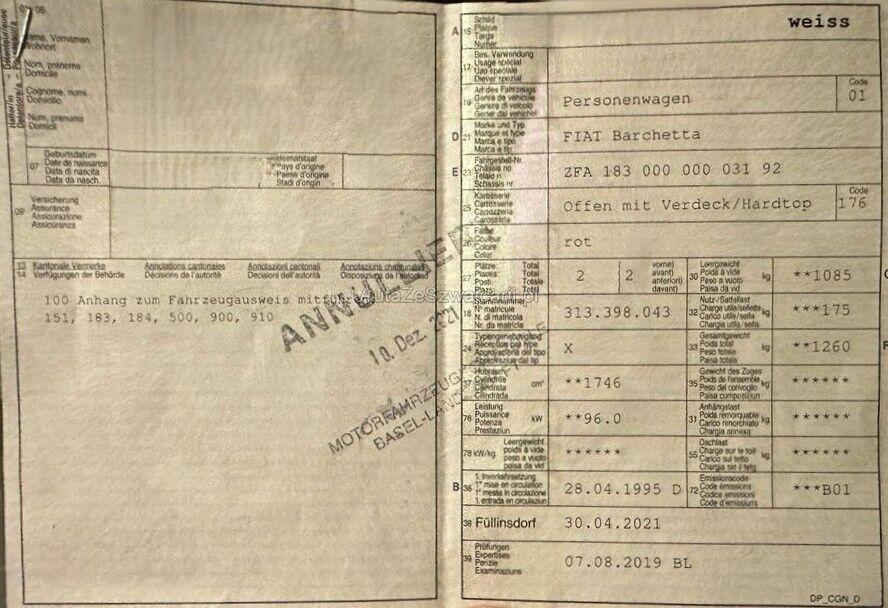 01-06
Name, Vornamen
Wohnort
Nom, prénoms
Domicile
Cognome, nomi
Domicilio
Num, prenums
Domicil
07
Geburtsdatum
Date de naissance
Data di nascita
Data da nasch.
Heimatstaat
Pays d'origine
Paese d'origine
Stadi d'origin
09
Versicherung
Assurance
Assicurazione
Assicuranza
13 Kantonale Vermerke Annotations cantonales Annotazioni cantonali Annotaziuns chantunalas
14 Verfügungen der Behörde Décisions de l'autorité Decisioni dell'autorità Disposiziuns da l'autoritad
100 Anhang zum Fahrzeugausweis mitführen
151, 183, 184, 500, 900, 910
ANNULLIERT
10. Dez. 2021
BASEL-LANDSCHAFT
AutaZeSzwajcarii.pl
weiss
A 15
Schild
Plaque
Targa
Numer
17
Bes. Verwendung
Usage spécial
Uso speciale
Diever spezial
19
Art des Fahrzeugs
Genre de véhicule
Genere di veicolo
Gener dal vehichel
Personenwagen
Code
01
D 21
Marke und Typ
Marque et type
Marca e tipo
Marca e tip
FIAT Barchetta
E 23
Fahrgestell-Nr.
Châssis no
Telaio n.
Schassis nr.
ZFA 183 000 000 031 92
25
Karosserie
Carrosserie
Carrozzeria
Carossaria
Offen mit Verdeck/Hardtop
Code
176
26
Farbe
Couleur
Colore
Colur
rot
27
Plätze: Total
Places: Total
Posti: Totale
Plazs: Total
2
2
vorne)
avant)
anteriori)
davant)
30
Leergewicht
Poids à vide
Peso a vuoto
Paisa da vid
kg
**1085
18
Stammnummer
N° matricule
N. di matricola
Nr. da matricla
313.398.043
32
Nutz-/Sattellast
Charge utile/sellette
Carico utile/sella
Chargia utila/sella
kg
***175
24
Typengenehmigung
Réception par type
Approvazione del tipo
Approvaziun dal tip
X
33
Gesamtgewicht
Poids total
Peso totale
Paisa totala
kg
**1260
37
Hubraum
Cylindrée
Cilindrata
Cilindrada
cm³
**1746
35
Gewicht des Zuges
Poids de l'ensemble
Peso del convoglio
Paisa cumposiziun
kg
******
76
Leistung
Puissance
Potenza
Prestaziun
kW
**96.0
31
Anhängelast
Poids remorquable
Carico rimorchiato
Chargia annexa
kg
******
78 kW/kg
Leergewicht
poids à vide
peso a vuoto
paisa da vid
******
55
Dachlast
Charge sur le toit
Carico sul tetto
Chargia sin il tetg
kg
******
B 36
1. Inverkehrsetzung
1re mise en circulation
1a messa in circolazione
1. entrada en circulaziun
28.04.1995 D
72
Emissionscode
Code émissions
Codice emissioni
Code d'emissiuns
***B01
38 Füllinsdorf 30.04.2021
39
Prüfungen
Expertises
Perizie
Examinaziuns
07.08.2019 BL
DP_CGN_D